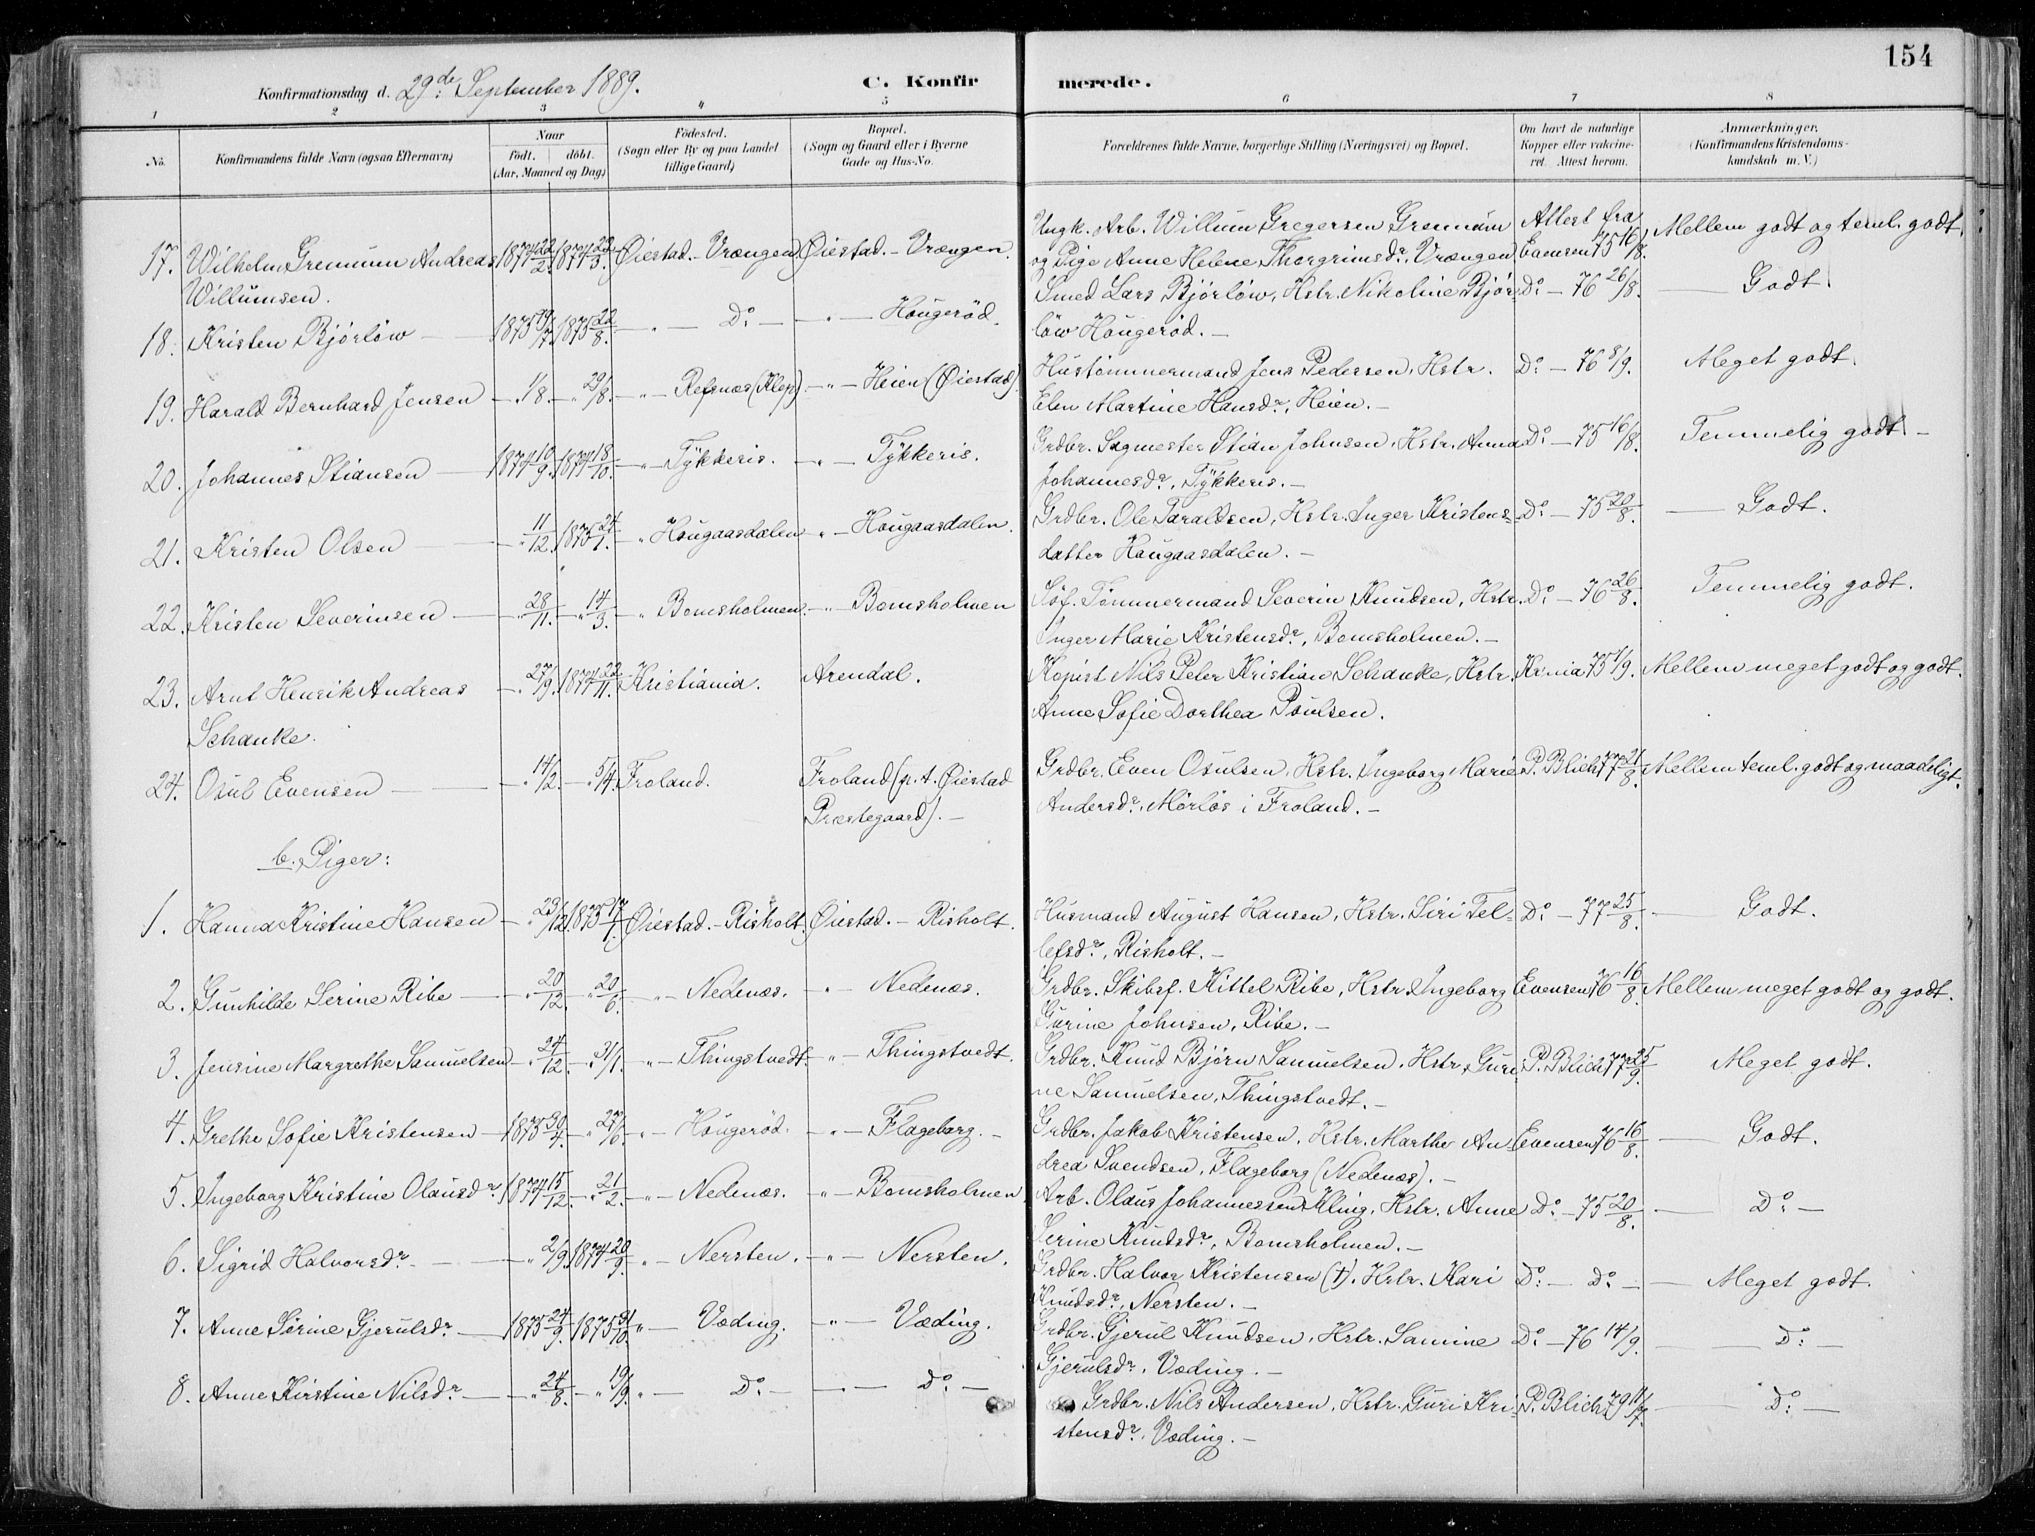 154
Konfirmationsdag d. 29de September 1889.
C. Konfirmerede.
1 2 3 4 5 6 7 8
No. Konfirmandens fulde Navn (ogsaa Efternavn) Naar født. døbt. (Aar, Maaned og Dag) Fødested. (Sogn eller By og paa Landet tillige Gaard) Bopæl. (Sogn og Gaard eller i Byerne Gade og Hus-No. Forældrenes fulde Navne, borgerlige Stilling (Næringsvei) og Bopæl. Om havt de naturlige Kopper eller vakcineret. Attest herom. Anmærkninger. (Konfirmandens Kristendomskundskab m. V.)
17. Wilhelm Gremum Andreas 1874 22/2. 1874 22/3. Øiestad. - Vrængen Øiestad. - Vrængen. Ungk. Arb. Willum Gregersen Gremum Attest fra Mellem godt og teml. godt.
Willumsen. og Pige Anne Helene Thorgrimsdr, Vrængen Evensen 75 16/8.
18. Kristen Bjørløw 1875 19/7. 1875 22/8. - " - Do - - " - Hougerød. Smed Lars Bjørløw, Hstr. Nikoline Bjør- Do - 76 26/8. Godt.
løw Hougerød. -
19. Harald Bernhard Jensen - " 1/8. - " 29/8. - " - Refsnæs (Klep) - " - Heien (Øiestad). Hustømmermand Jens Pedersen, Hstr. Do - 76 8/9. Meget godt.
Elen Martine Hansdr, Heien. -
20. Johannes Stiansen 1874 10/9. 1874 18/10. - " - Tykkeris. - " - Tykkeris. Grdbr. Sagmester Stian Johnsen, Hstr. Anna Do - 75 16/8. Temmelig godt -
Johannesdr, Tykkeris. -
21. Kristen Olsen " 11/12. 1875 24/1. " Hougaasdalen " - Hougaasdalen. Grdbr. Ole Taraldsen, Hstr. Inger Kristens- Do - 75 20/8. Godt.
datter Hougaasdalen. -
22. Kristen Severinsen " 28/11. " 14/3. " Bomsholmen. - " - Bomsholmen Søf. Tømmermand Severin Knudsen, Hstr. Do - 76 26/8. Temmelig godt.
Inger Marie Kristensdr, Bomsholmen. -
23. Arnt Henrik Andreas " 27/9. 1874 22/11. Kristiania. Arendal. Kopist Nils Peter Kristian Schanke, Hstr. Kr.nia 75 1/9. Mellem meget godt og godt.
Schanke. Anne Sofie Dorthea Poulsen.
24. Osul Evensen " 14/2. - " 5/4. Froland. Froland (p. t. Øiestad Grdbr. Even Osulsen, Hstr. Ingeborg Marie P. Blich 77 21/8. Mellem teml. godt og maadeligt.
Præstegaard). - Andersdr, Mørløs i Froland. -
b. Piger:
1. Hanna Kristine Hansen - " 29/12. 1875 17/1. Øiestad. - Risholt. Øiestad. - Risholt. Husmand August Hansen, Hstr. Siri Tel- Do - 77 25/8. Godt.
lefsdr, Risholt. -
2. Gunhilde Serine Ribe " 20/12. " 20/6. - " - Nedenæs. - " - Nedenæs. Grdbr. Skibsf. Kittel Ribe, Hstr. Ingeborg Evensen 76 16/8. Mellem meget godt og godt.
Gurine Johnsen, Ribe. -
3. Jensine Margrethe Samuelsen " 24/12. " 31/1. - " - Thingstvedt. - " - Thingstvedt. Grdbr. Knud Bjørn Samuelsen, Hstr. Guri- P. Blich 77 25/9. Meget godt.
ne Samuelsen, Thingstvedt. -
4. Grethe Sofie Kristensen 1875 30/4. " 27/6. - " - Hougerød. - " - Flageborg. - Grdbr. Jakob Kristensen, Hstr. Marthe An- Evensen 76 16/8. Godt.
drea Svendsen, Flageborg (Nedenæs). -
5. Ingeborg Kristine Olausdr. 1874 15/12. " 21/2. - " - Nedenæs. - " - Bomsholmen. Arb. Olaus Johannessen Kling, Hstr. Anne Do - 75 20/8. Do -
Serine Knudsdr, Bomsholmen. -
6. Sigrid Halvorsdr. - " 2/9. 1874 20/9. " - Nersten. - " - Nersten. Grdbr. Halvor Kristensen (†). Hstr. Kari Do - Do - Meget godt.
Knudsdr, Nersten. -
7. Anne Sørine Gjerulsdr 1875 24/9. 1875 31/10. " - Væding. - " - Væding. Grdbr. Gjerul Knudsen, Hstr. Samine Do - 76 14/9. Do -
Gjerulsdr, Væding. -
8. Anne Kirstine Nilsdr. " 24/8. - " 19/9. " - Do - - " - Do - Grdbr. Nils Andersen, Hstr. Guri Kri- P. Blich 79 11/7. Do -
stensdr. Væding. -